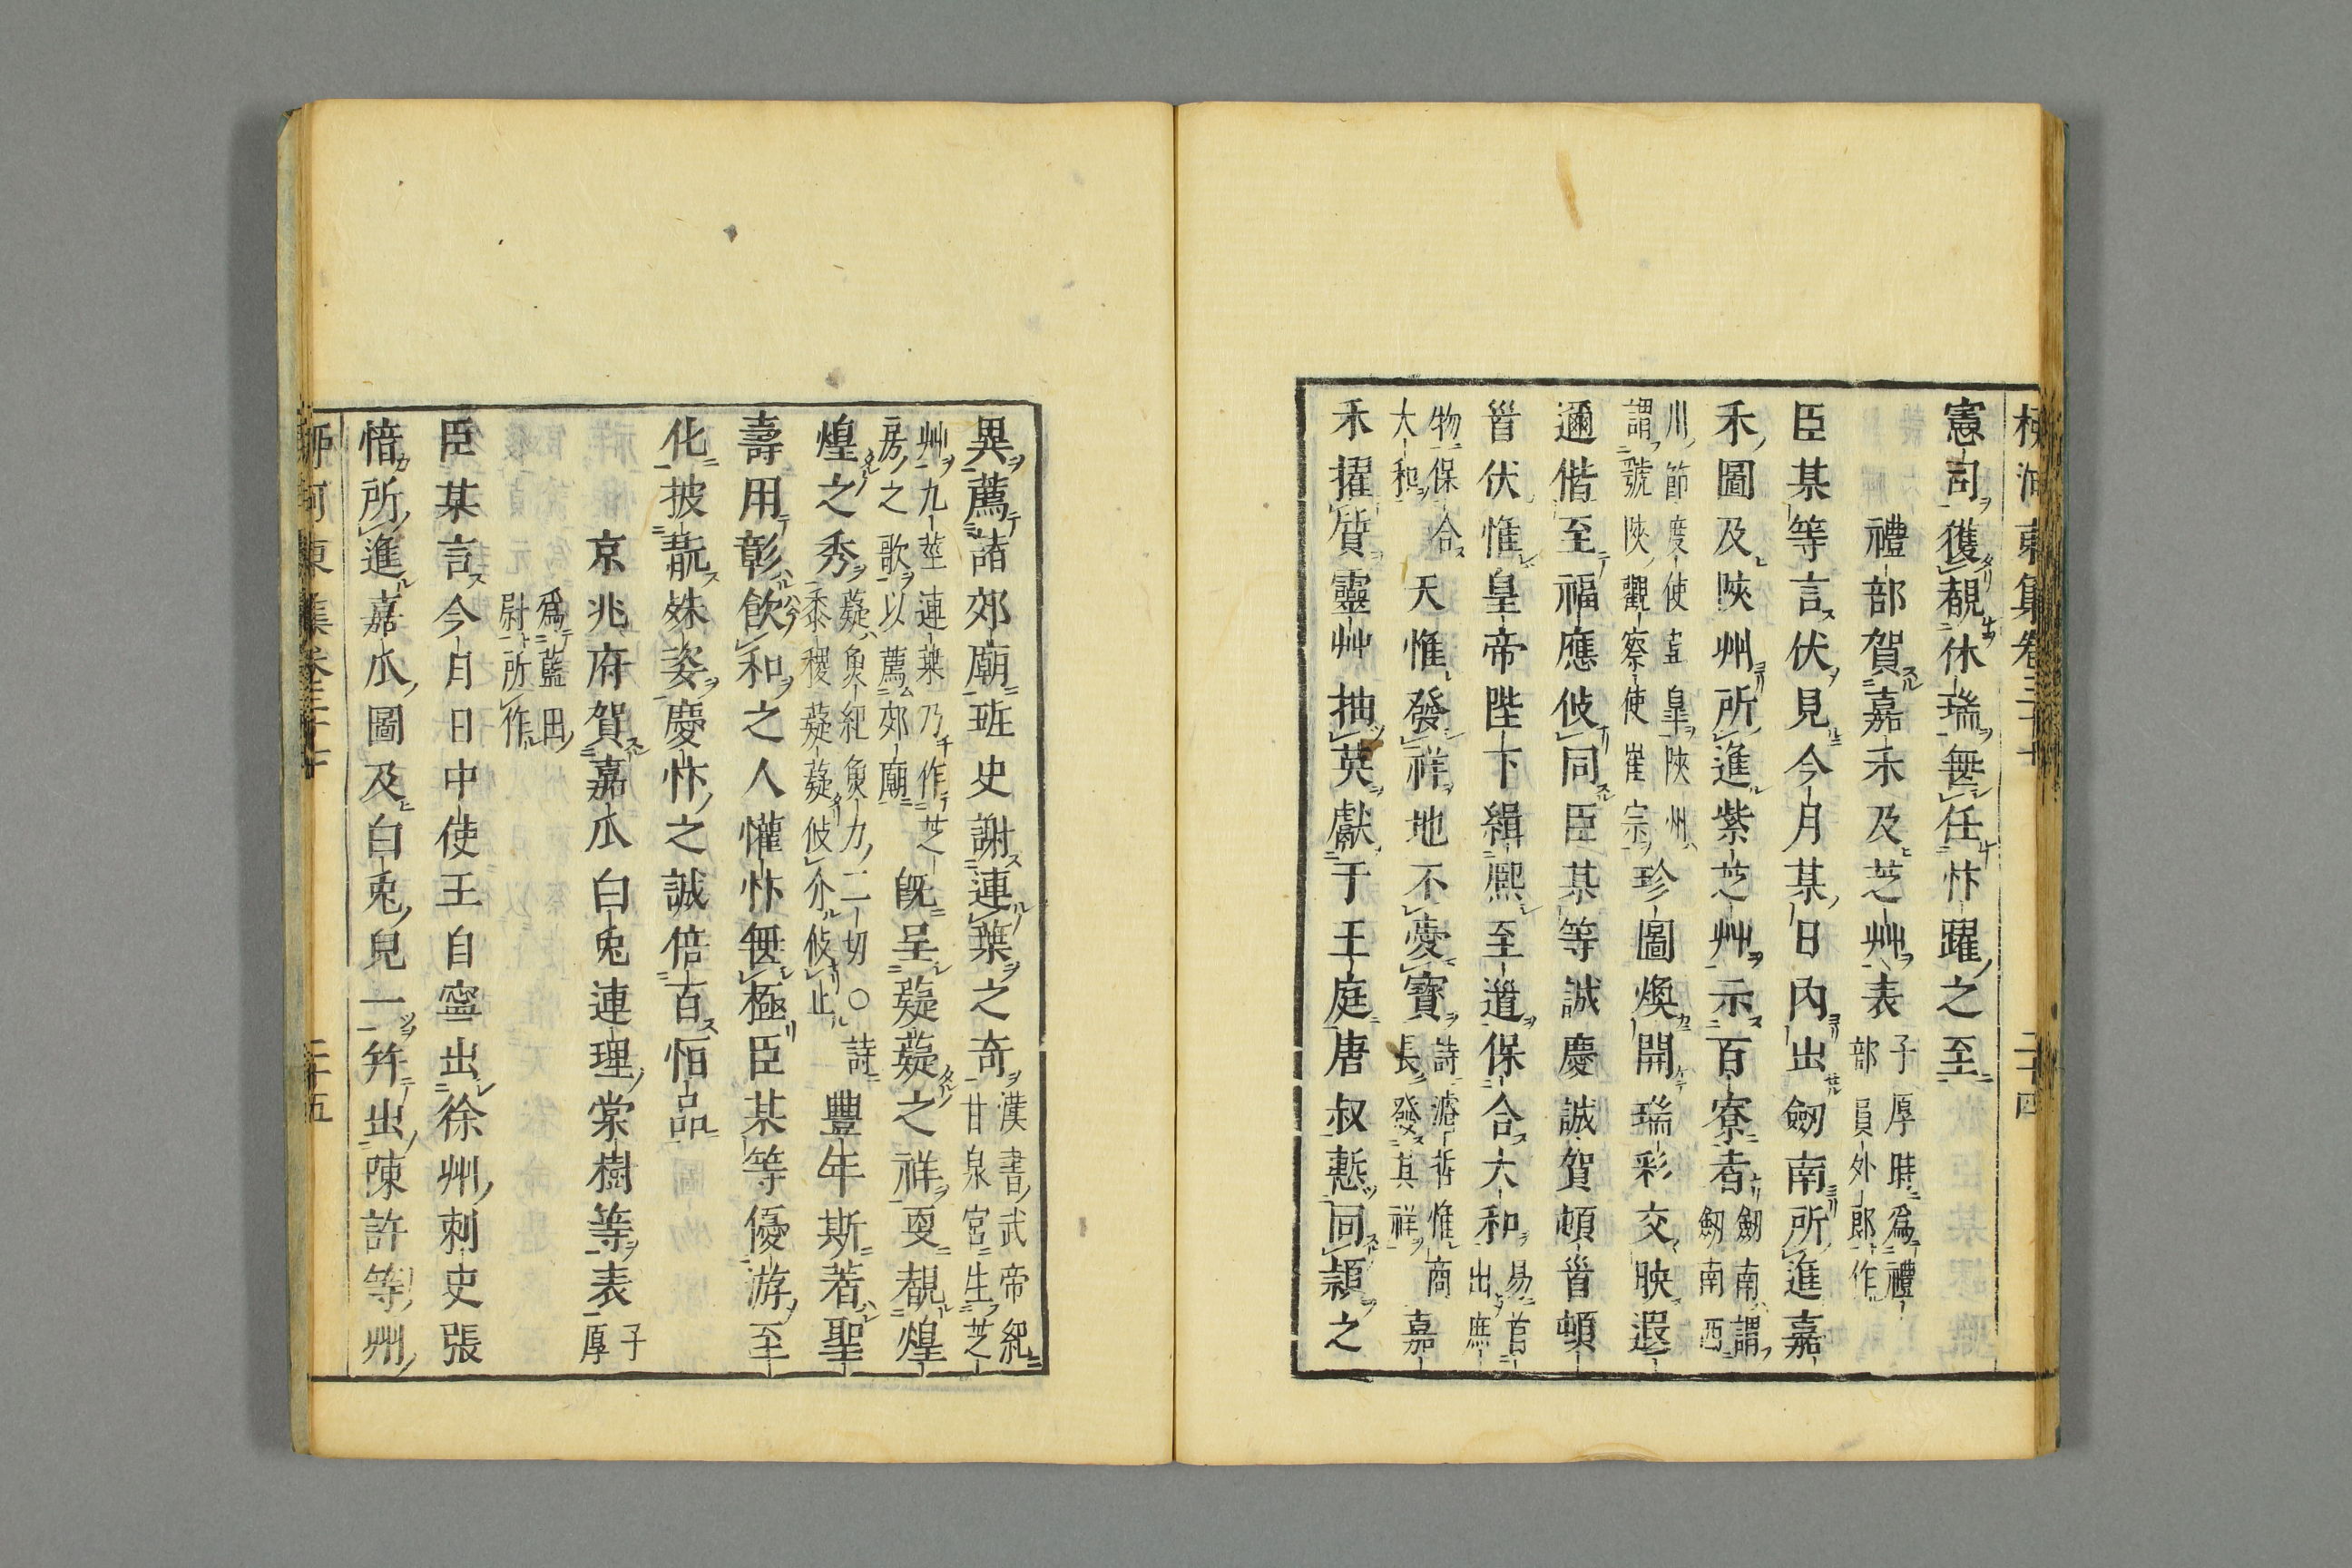 憲司獲覩休瑞無任忭躍之至
禮部賀嘉禾及芝艸表子厚時爲禮部員外郎作
臣某等言伏見今月某日內出劒南所進嘉
禾圖及陜州所進紫芝艸示百寮者劒南謂劒南西
川節度使韋臯陜州謂號陜觀察使崔宗珍圖煥開瑞彩交映遐
邇偕至福應攸同臣某等誠慶誠賀頓首頓
首伏惟皇帝陛下緝熙至道保合大和易首出庶
物保合大和天惟發祥地不愛寶詩濬哲惟商長發其祥嘉
禾擢質靈艸抽英獻于王庭唐叔慙同穎之
異薦諸郊廟班史謝連葉之奇漢書武帝紀甘泉宮生芝
艸九莖連葉乃作芝房之歌以薦郊廟旣呈薿薿之祥更覩煌
煌之秀薿魚紀魚力二切黍稷薿薿攸介攸止〇詩豐年斯著聖
壽用彰飮和之人懽忭無極臣某等優游至
化披翫殊姿慶忭之誠倍百恒品
京兆府賀嘉瓜白兔連理棠樹等表子厚
爲藍田尉所作
臣某言今日日中使王自寧出徐州刺史張
愔所進嘉瓜圖及白兔兒一幷出陳許等州
二十五